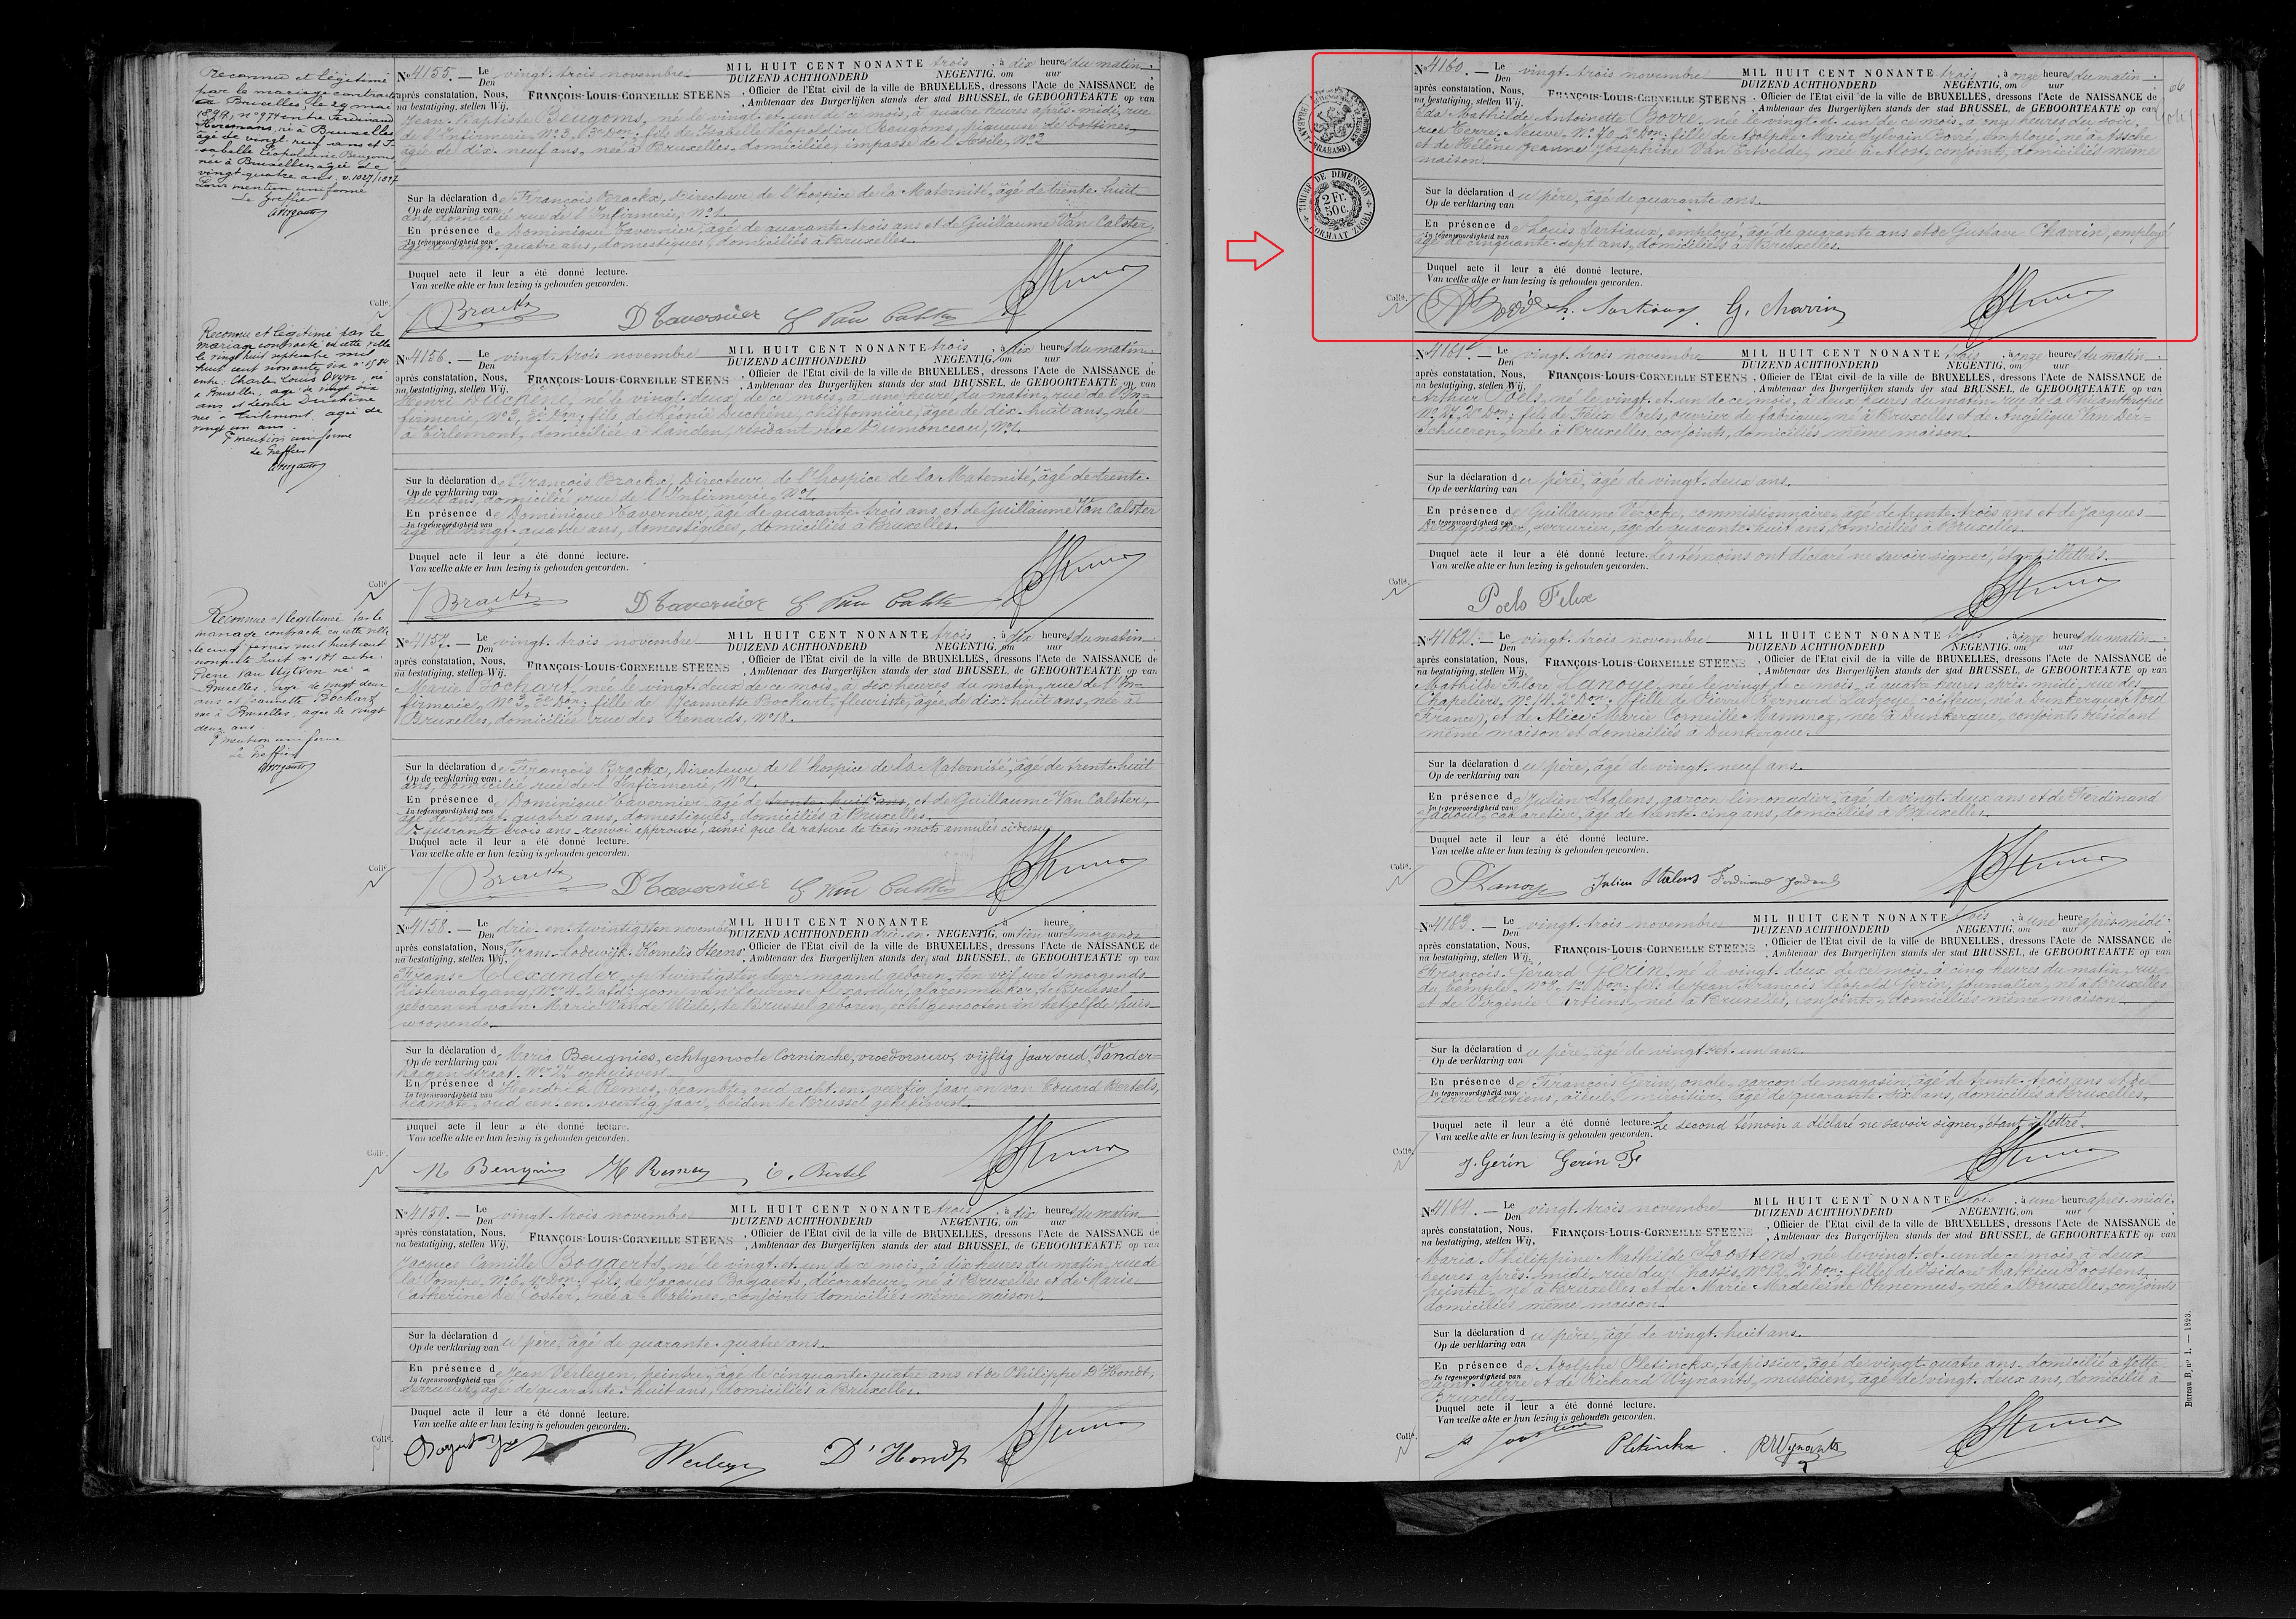 Reconnu et légitimé
par le mariage contracté
à Bruxelles le 29 mai
1897, n° 974 entre Ferdinand
né à Bruxelles
âgé de vingt neuf ans et I-
sabelle Léopoldine Beugoms
née à Bruxelles, âgée de
vingt quatre ans. v. 1027/1897
Pour mention uniforme
Le Greffier
N° 4155. — Le vingt-trois novembre MIL HUIT CENT NONANTE trois, à dix heures du matin
Den DUIZEND ACHTHONDERD NEGENTIG, om uur
après constatation, Nous, FRANÇOIS-LOUIS-CORNEILLE STEENS, Officier de l'État civil de la ville de BRUXELLES, dressons l'Acte de NAISSANCE de
na bestatiging, stellen Wij, Ambtenaar des Burgerlijken stands der stad BRUSSEL, de GEBOORTEAKTE op van
Jean-Baptiste Beugoms, né le vingt et un de ce mois, à quatre heures après-midi, rue
de l'Infirmerie, N° 3, 3e Don; fils de Isabelle Léopoldine Beugoms, piqueuse de bottines,
âgée de dix-neuf ans, née à Bruxelles, domiciliée, impasse de l'
Sur la déclaration de François Brackx, Directeur de l'hospice de la Maternité, âgé de trente-huit
Op de verklaring van ans, domicilié rue de l'Infirmerie, N° 1.
En présence de Dominique Tavernier, âgé de quarante-trois ans et de Guillaume Van Calster,
In tegenwoordigheid van âgé de vingt-quatre ans, domestiques, domiciliés à Bruxelles.
Duquel acte il leur a été donné lecture.
Van welke akte er hun lezing is gehouden geworden.
Collé.
Brackx D Tavernier G Van Calster
Reconnu et légitimé par le
mariage contracté en cette ville
le vingt huit septembre mil
huit cent nonante six n° 1584
entre Charles Louis né
à Bruxelles, âgé de vingt six
ans et Léonie Duchêne
née à Tirlemont, âgée de
vingt un ans.
P mention uniforme
Le Greffier
N° 4156. — Le vingt-trois novembre MIL HUIT CENT NONANTE trois, à dix heures du matin
Den DUIZEND ACHTHONDERD NEGENTIG, om uur
après constatation, Nous, FRANÇOIS-LOUIS-CORNEILLE STEENS, Officier de l'État civil de la ville de BRUXELLES, dressons l'Acte de NAISSANCE de
na bestatiging, stellen Wij, Ambtenaar des Burgerlijken stands der stad BRUSSEL, de GEBOORTEAKTE op van
Henri Duchêne, né le vingt-deux de ce mois, à une heure du matin, rue de l'In-
firmerie, N° 3, 3e Don; fils de Léonie Duchêne, chiffonnière, âgée de dix-huit ans, née
à Tirlemont, domiciliée à Landen, résidant rue Dumonceau, N° 1.
Sur la déclaration de François Brackx, Directeur de l'hospice de la Maternité, âgé de trente-
Op de verklaring van huit ans, domicilié rue de l'Infirmerie, N° 1.
En présence de Dominique Tavernier, âgé de quarante-trois ans, et de Guillaume Van Calster
In tegenwoordigheid van âgé de vingt-quatre ans, domestiques, domiciliés à Bruxelles.
Duquel acte il leur a été donné lecture.
Van welke akte er hun lezing is gehouden geworden.
Collé.
Brackx D Tavernier G Van Calster
Reconnue et légitimée par le
mariage contracté en cette ville
le cinq février mil huit cent
nonante huit n° 181 entre
Pierre Van Uytven né à
Bruxelles, âgé de vingt deux
ans et Jeannette Bockart
née à Bruxelles, âgée de vingt
deux ans
P mention uniforme
Le Greffier
N° 4157. — Le vingt-trois novembre MIL HUIT CENT NONANTE trois, à dix heures du matin
Den DUIZEND ACHTHONDERD NEGENTIG, om uur
après constatation, Nous, FRANÇOIS-LOUIS-CORNEILLE STEENS, Officier de l'État civil de la ville de BRUXELLES, dressons l'Acte de NAISSANCE de
na bestatiging, stellen Wij, Ambtenaar des Burgerlijken stands der stad BRUSSEL, de GEBOORTEAKTE op van
Marie Bockart, née le vingt-deux de ce mois, à six heures du matin, rue de l'In-
firmerie, N° 3, 3e Don; fille de Jeannette Bockart, fleuriste, âgée de dix-huit ans, née à
Bruxelles, domiciliée rue des Renards, N° 18.
Sur la déclaration de François Brackx, Directeur de l'hospice de la Maternité, âgé de trente-huit
Op de verklaring van ans, domicilié rue de l'Infirmerie, N° 1.
En présence de Dominique Tavernier, âgé de trente-huit ans, et de Guillaume Van Calster,
In tegenwoordigheid van âgé de vingt-quatre ans, domestiques, domiciliés à Bruxelles.
quarante-trois ans renvoi approuvé, ainsi que la rature de trois mots annulés ci-dessus
Duquel acte il leur a été donné lecture.
Van welke akte er hun lezing is gehouden geworden.
Collé.
Brackx D Tavernier G Van Calster
N° 4158. — Le drie-en-twintigsten november MIL HUIT CENT NONANTE à heure
Den DUIZEND ACHTHONDERD drie-en-NEGENTIG, om tien uur 's morgends
après constatation, Nous, Frans-Lodewijk-Kornelis Steens, Officier de l'État civil de la ville de BRUXELLES, dressons l'Acte de NAISSANCE de
na bestatiging, stellen Wij, Ambtenaar des Burgerlijken stands der stad BRUSSEL, de GEBOORTEAKTE op van
Frans Alexander, op twintigsten dezer maand geboren, ten vijf ure 's morgends
N° 4, 2e afd; zoon van Laurens Alexander, glazenmaker, te Brussel
geboren en van Maria Vande Wiele, te Brussel geboren, echtgenooten in hetzelfde huis
woonende.
Sur la déclaration de Maria Beugnies, echtgenoote Corninche, vroedvrouw, vijftig jaar oud, Vander-
Op de verklaring van haegenstraat, N° 27 gehuisvest.
En présence de Hendrik Remes, beambte, oud acht-en-veertig jaar en van Eduard Bertels,
In tegenwoordigheid van beambte, oud een-en-veertig jaar, beiden te Brussel gehuisvest.
Duquel acte il leur a été donné lecture.
Van welke akte er hun lezing is gehouden geworden.
Collé.
M Beugnies H Remes E. Bertels
N° 4159. — Le vingt-trois novembre MIL HUIT CENT NONANTE trois, à dix heures du matin
Den DUIZEND ACHTHONDERD NEGENTIG, om uur
après constatation, Nous, FRANÇOIS-LOUIS-CORNEILLE STEENS, Officier de l'État civil de la ville de BRUXELLES, dressons l'Acte de NAISSANCE de
na bestatiging, stellen Wij, Ambtenaar des Burgerlijken stands der stad BRUSSEL, de GEBOORTEAKTE op van
Jacques Camille Bogaerts, né le vingt et un de ce mois, à dix heures du matin, rue de
la Pompe, N° 6, 4e Don; fils de Jacques Bogaerts, décorateur, né à Bruxelles et de Marie
Catherine De Coster, née à Malines, conjoints domiciliés même maison.
Sur la déclaration du père, âgé de quarante-quatre ans.
Op de verklaring van
En présence de Jean Verleyen, peintre, âgé de cinquante-quatre ans et de Philippe D'Hondt,
In tegenwoordigheid van serrurier, âgé de quarante-huit ans, domiciliés à Bruxelles.
Duquel acte il leur a été donné lecture.
Van welke akte er hun lezing is gehouden geworden.
Collé.
Verleyen D'Hondt
BRABAND
TIMBRE DE DIMENSION
2 Fr.
50 c.
FORMAAT ZEGEL
N° 4160. — Le vingt-trois novembre MIL HUIT CENT NONANTE trois, à onze heures du matin
Den DUIZEND ACHTHONDERD NEGENTIG, om uur
après constatation, Nous, FRANÇOIS-LOUIS-CORNEILLE STEENS, Officier de l'État civil de la ville de BRUXELLES, dressons l'Acte de NAISSANCE de
na bestatiging, stellen Wij, Ambtenaar des Burgerlijken stands der stad BRUSSEL, de GEBOORTEAKTE op van
Ida Mathilde Antoinette Bovré, née le vingt et un de ce mois, à onze heures du soir,
rue Terre-Neuve, N° 72, 2e Don; fille de Adolphe Marie Sylvain Bovré, employé, né à Assche
et de Hélène Jeanne Joséphine Van Ertvelde, née à Alost, conjoints, domiciliés même
maison.
Sur la déclaration du père, âgé de quarante ans.
Op de verklaring van
En présence de Louis Sartiaux, employé, âgé de quarante ans et de Gustave Charrin, employé
In tegenwoordigheid van âgé de cinquante-sept ans, domiciliés à Bruxelles.
Duquel acte il leur a été donné lecture.
Van welke akte er hun lezing is gehouden geworden.
Collé.
A Bovré L. Sartiaux G. Charrin
N° 4161. — Le vingt-trois novembre MIL HUIT CENT NONANTE trois, à onze heures du matin
Den DUIZEND ACHTHONDERD NEGENTIG, om uur
après constatation, Nous, FRANÇOIS-LOUIS-CORNEILLE STEENS, Officier de l'État civil de la ville de BRUXELLES, dressons l'Acte de NAISSANCE de
na bestatiging, stellen Wij, Ambtenaar des Burgerlijken stands der stad BRUSSEL, de GEBOORTEAKTE op van
Arthur Poels, né le vingt et un de ce mois, à deux heures du matin, rue de la Philanthropie
N° 27, 2e Don; fils de Félix Poels, ouvrier de fabrique, né à Bruxelles et de Angélique Van Der-
Schueren, née à Bruxelles, conjoints, domiciliés même maison.
Sur la déclaration du père, âgé de vingt-deux ans.
Op de verklaring van
En présence de Guillaume commissionnaire, âgé de trente-trois ans et de Jacques
In tegenwoordigheid van Deraymaker, serrurier, âgé de quarante-huit ans, domiciliés à Bruxelles.
Duquel acte il leur a été donné lecture. Les témoins ont déclaré ne savoir signer, étant illettrés.
Van welke akte er hun lezing is gehouden geworden.
Collé.
Poels Felix
N° 4162. — Le vingt-trois novembre MIL HUIT CENT NONANTE trois, à onze heures du matin
Den DUIZEND ACHTHONDERD NEGENTIG, om uur
après constatation, Nous, FRANÇOIS-LOUIS-CORNEILLE STEENS, Officier de l'État civil de la ville de BRUXELLES, dressons l'Acte de NAISSANCE de
na bestatiging, stellen Wij, Ambtenaar des Burgerlijken stands der stad BRUSSEL, de GEBOORTEAKTE op van
Mathilde Flore Lanoye, née le vingt de ce mois, à quatre heures après-midi, rue des
Chapeliers, N° 14, 2e Don; fille de Pierre Bernard Lanoye, coiffeur, né à Dunkerque (Nord
France), et de Alice Marie Corneille Mammez, née à Dunkerque, conjoints résidant
même maison et domiciliés à Dunkerque.
Sur la déclaration du père, âgé de vingt-neuf ans.
Op de verklaring van
En présence de Julien Stalens, garçon limonadier, âgé de vingt-deux ans et de Ferdinand
In tegenwoordigheid van cabaretier, âgé de trente-cinq ans, domiciliés à Bruxelles.
Duquel acte il leur a été donné lecture.
Van welke akte er hun lezing is gehouden geworden.
Collé.
P Lanoye Julien Stalens Ferdinand
N° 4163. — Le vingt-trois novembre MIL HUIT CENT NONANTE trois, à une heure après-midi
Den DUIZEND ACHTHONDERD NEGENTIG, om uur
après constatation, Nous, FRANÇOIS-LOUIS-CORNEILLE STEENS, Officier de l'État civil de la ville de BRUXELLES, dressons l'Acte de NAISSANCE de
na bestatiging, stellen Wij, Ambtenaar des Burgerlijken stands der stad BRUSSEL, de GEBOORTEAKTE op van
François Gérard Gerin, né le vingt-deux de ce mois, à cinq heures du matin, rue
du Temple, N° 8, 1e Don; fils de Jean François Léopold Gerin, journalier, né à Bruxelles
et de Virginie née à Bruxelles, conjoints, domiciliés même maison.
Sur la déclaration du père, âgé de vingt et un ans.
Op de verklaring van
En présence de François Gerin, oncle, garçon de magasin, âgé de trente-trois ans et de
In tegenwoordigheid van Pierre aïeul, miroitier, âgé de quarante-six ans, domiciliés à Bruxelles.
Duquel acte il leur a été donné lecture. Le second témoin a déclaré ne savoir signer, étant illettré.
Van welke akte er hun lezing is gehouden geworden.
Collé.
J. Gerin Gerin F
N° 4164. — Le vingt-trois novembre MIL HUIT CENT NONANTE trois, à une heure après-midi
Den DUIZEND ACHTHONDERD NEGENTIG, om uur
après constatation, Nous, FRANÇOIS-LOUIS-CORNEILLE STEENS, Officier de l'État civil de la ville de BRUXELLES, dressons l'Acte de NAISSANCE de
na bestatiging, stellen Wij, Ambtenaar des Burgerlijken stands der stad BRUSSEL, de GEBOORTEAKTE op van
Maria Philippine Mathilde Joostens, née le vingt et un de ce mois, à deux
heures après-midi, rue du Chassis, N° 12, 2e Don; fille de Isidore Mathieu Joostens,
peintre, né à Bruxelles et de Marie Madeleine Ohnemus, née à Bruxelles, conjoints
domiciliés même maison.
Sur la déclaration du père, âgé de vingt-huit ans.
Op de verklaring van
En présence de Adolphe Pletinckx, tapissier, âgé de vingt-quatre ans, domicilié à Jette-
In tegenwoordigheid van Saint-Pierre et de Richard Wynants, musicien, âgé de vingt-deux ans, domicilié à
Bruxelles
Duquel acte il leur a été donné lecture.
Van welke akte er hun lezing is gehouden geworden.
Collé.
Joostens Pletinckx RWynants
Bureau B, n° 1. — 1893.